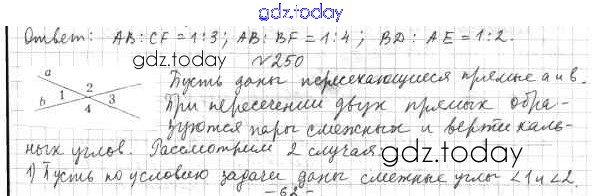 gdz.today
Ответ: AB:CF=1:3; AB:BF=1:4; BD:AE=1:2.
gdz.today
№250
a
b 1 2 3 4
Пусть даны пересекающиеся прямые a и b.
При пересечении двух прямых обра-
зуются пары смежных и вертикаль-
ных углов. Рассмотрим 2 случая.
gdz.today
1) Пусть по условию задачи даны смежные углы <1 и <2.
-62-